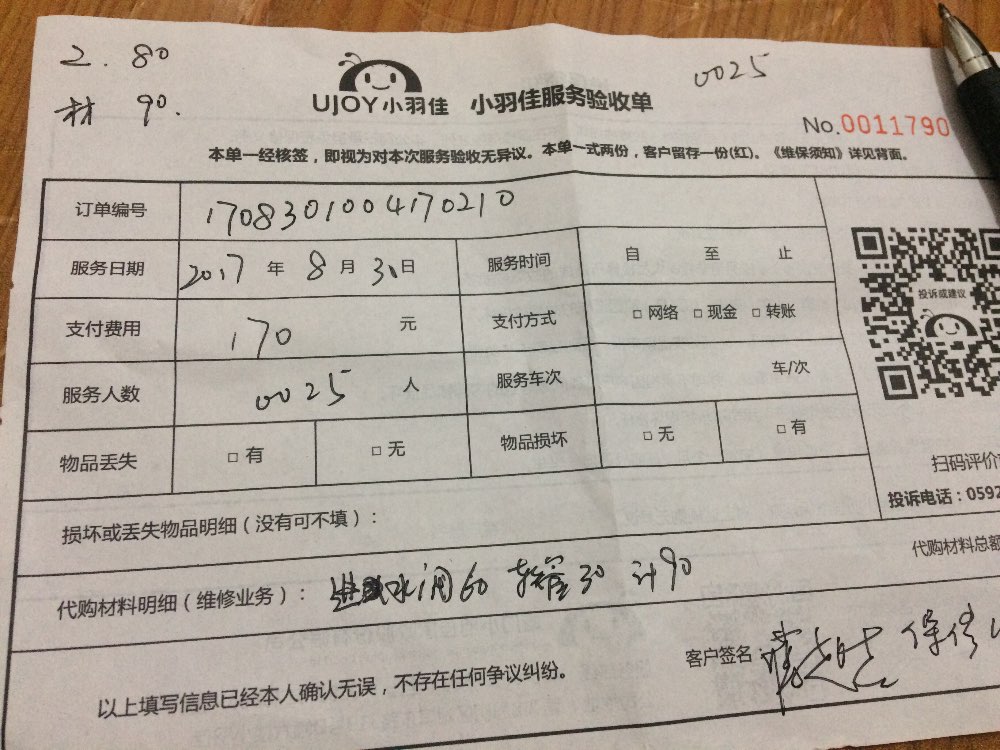 2. 80
材 90.
UJOY小羽佳 小羽佳服务验收单
0025
No.0011790
本单一经核签，即视为对本次服务验收无异议。本单一式两份，客户留存一份(红)。《维保须知》详见背面。
订单编号 1708301004170210
服务日期 2017 年 8 月 30 日 服务时间 自 至 止
支付费用 170 元 支付方式 □ 网络 □ 现金 □ 转账
投诉或建议
服务人数 0025 人 服务车次 车/次
物品丢失 □ 有 □ 无 物品损坏 □ 无 □ 有
扫码评价
投诉电话：0592
损坏或丢失物品明细（没有可不填）：
代购材料总额
代购材料明细（维修业务）： 进水阀60 30 计90
客户签名：
以上填写信息已经本人确认无误，不存在任何争议纠纷。